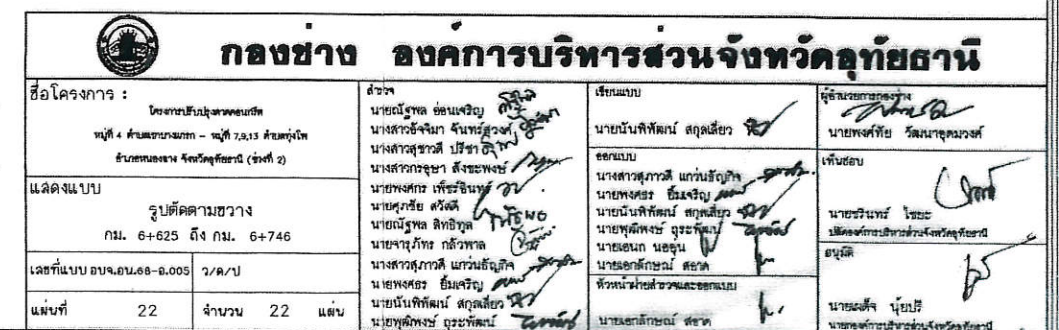 กองช่าง องค์การบริหารส่วนจังหวัดอุทัยธานี
ชื่อโครงการ :
โครงการปรับปรุงลาดคอนกรีต
หมู่ที่ 4 ตำบลเขาบางแกรก – หมู่ที่ 7,9,13 ตำบลทุ่งโพ
อำเภอหนองฉาง จังหวัดอุทัยธานี (ช่วงที่ 2)
แสดงแบบ
รูปตัดตามขวาง
กม. 6+625 ถึง กม. 6+746
เลขที่แบบ อบจ.อน.68-ถ.005 ว/ด/ป
แผ่นที่ 22 จำนวน 22 แผ่น
สำรวจ
นายณัฐพล อ่อนเจริญ
นางสาวอัจจิมา จันทร์สุวงศ์
นางสาวสุชาวดี ปรีชา
นางสาวกรอุษา สังขะพงษ์
นายพงศกร เพ็ชรอินทร์
นายศุภชัย สวัสดี
นายณัฐพล สิทธิทูล
นายจารุภัทร กลัวพาล
นางสาวสุภาวดี แกว่นธัญกิจ
นายพงศธร ยิ้มเจริญ
นายนันทิพัฒน์ สกุลเลี่ยว
นายพุฒิพงษ์ ถุระพัฒน์
เขียนแบบ
นายนันทิพัฒน์ สกุลเลี่ยว
ออกแบบ
นางสาวสุภาวดี แกว่นธัญกิจ
นายพงศธร ยิ้มเจริญ
นายนันทิพัฒน์ สกุลเลี่ยว
นายพุฒิพงษ์ ถุระพัฒน์
นายเอนก นออุน
นายเอกลักษณ์ สอาด
หัวหน้าฝ่ายสำรวจและออกแบบ
นายเอกลักษณ์ สอาด
ผู้อำนวยการกองช่าง
นายพงศ์ทัย วัฒนาอุดมวงศ์
เห็นชอบ
นายชรินทร์ ไชยะ
ปลัดองค์การบริหารส่วนจังหวัดอุทัยธานี
อนุมัติ
นายเผด็จ นุ้ยปรี
นายกองค์การบริหารส่วนจังหวัดอุทัยธานี